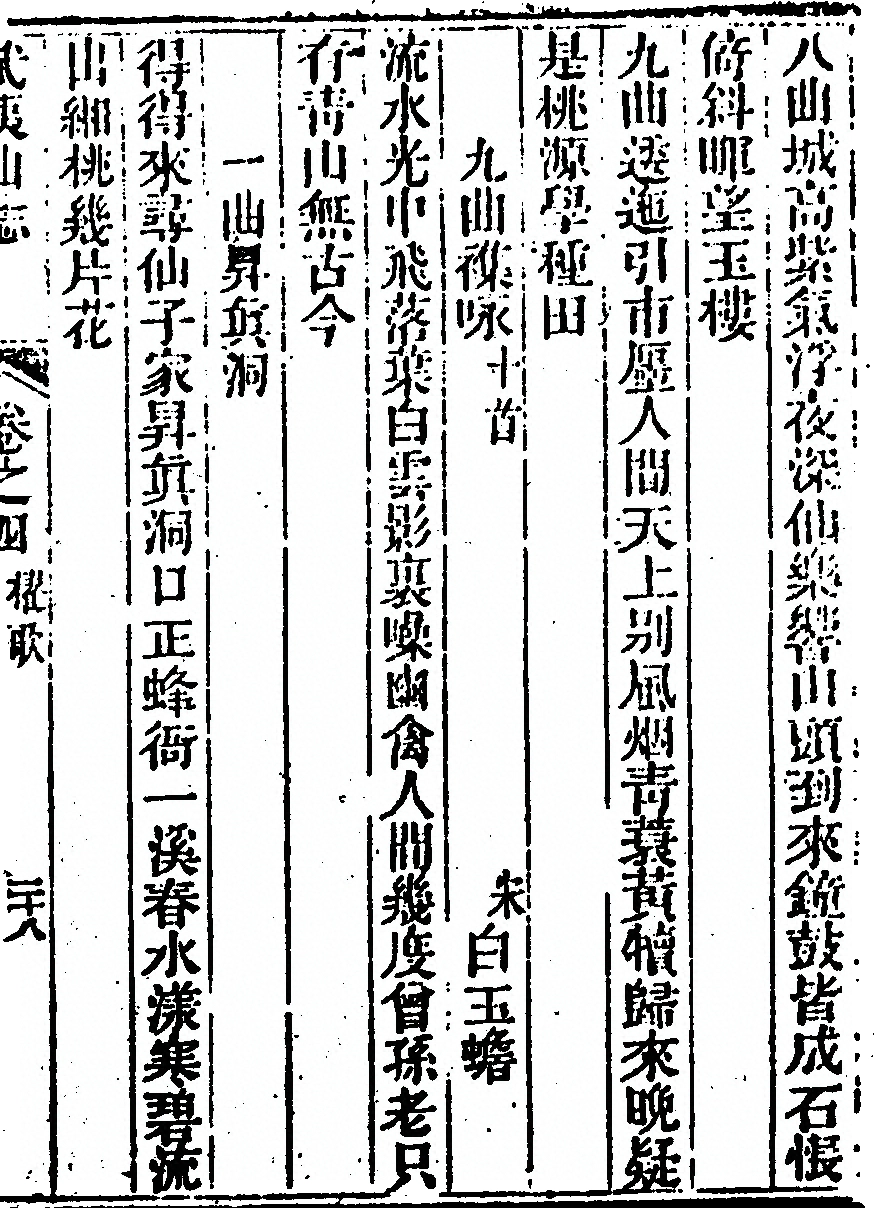 八曲城高紫氣浮夜深仙樂響山頭到來鐘鼓皆成石悵
倚斜暉望玉樓
九曲逶迤引市廛人間天上別風烟青蓑黃犢歸來晚疑
是桃源學種田
九曲襍咏十首 宋白玉蟾
流水光中飛落葉白雲影裏噪幽禽人間幾度曾孫老只
存青山無古今
一曲昇眞洞
得得來尋仙子家昇眞洞口正蜂衙一溪春水漾寒碧流
出緗桃幾片花
武夷山志 卷之四 櫂歌 二十八